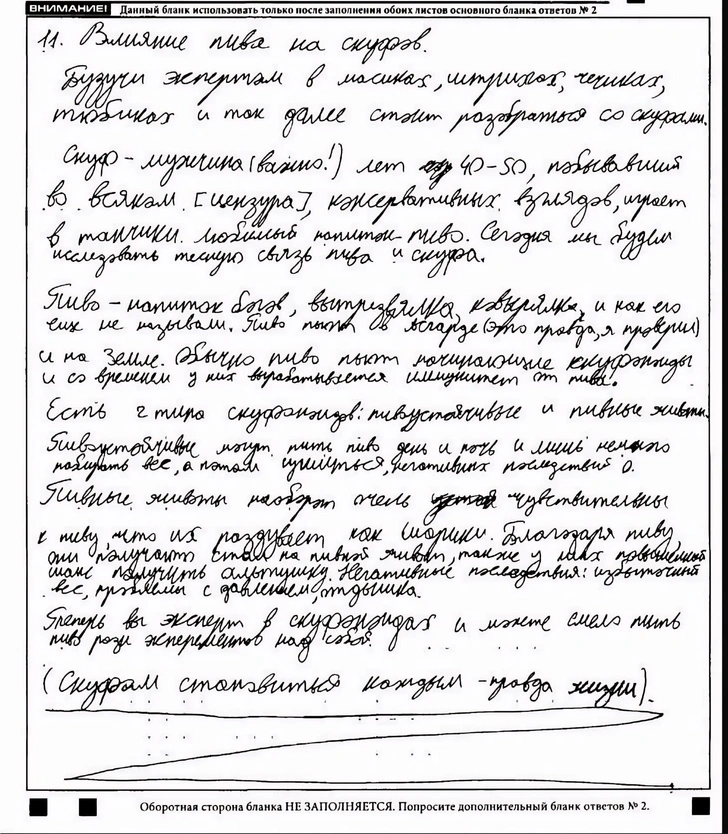 ВНИМАНИЕ! Данный бланк использовать только после заполнения обоих листов основного бланка ответов № 2
11. Влияние пива на скуфов.
Будучи экспертом в масиках, штрихах, чечиках,
тюбиках и так далее стоит разобраться со скуфами.
Скуф - мужчина (важно!) лет 40-50, побывавший
во всяком [цензура], консервативных взглядов, играет
в танчики. Любимый напиток - пиво. Сегодня мы будем
исследовать тесную связь пива и скуфа.
Пиво - напиток богов, вытрезвялка, ковырялка, и как его
еих не называли. Пиво пьют в Асгарде (это правда, я проверил)
и на Земле. Обычно пиво пьют начинающие скуфоноиды
и со временем у них вырабатывается иммунитет от пива.
Есть 2 типа скуфоноидов: пивоустойчивые и пивные животы.
Пивоустойчивые могут пить пиво день и ночь и лишь немного
набирать вес, а потом сушиться, негативных последствий 0.
Пивные животы наоборот очень чувствительны
к пиву, что их раздувает как шарики. Благодаря пиву,
они получают стан на пивной живот, также у них повышенной
шанс получить альтушку. Негативные последствия: избыточный
вес, проблемы с давлением, отдышка.
Теперь вы эксперт в скуфоноидах и можете смело пить
пиво ради эксперементов над собой.
(Скуфом становиться каждым - правда жизни).
Оборотная сторона бланка НЕ ЗАПОЛНЯЕТСЯ. Попросите дополнительный бланк ответов № 2.